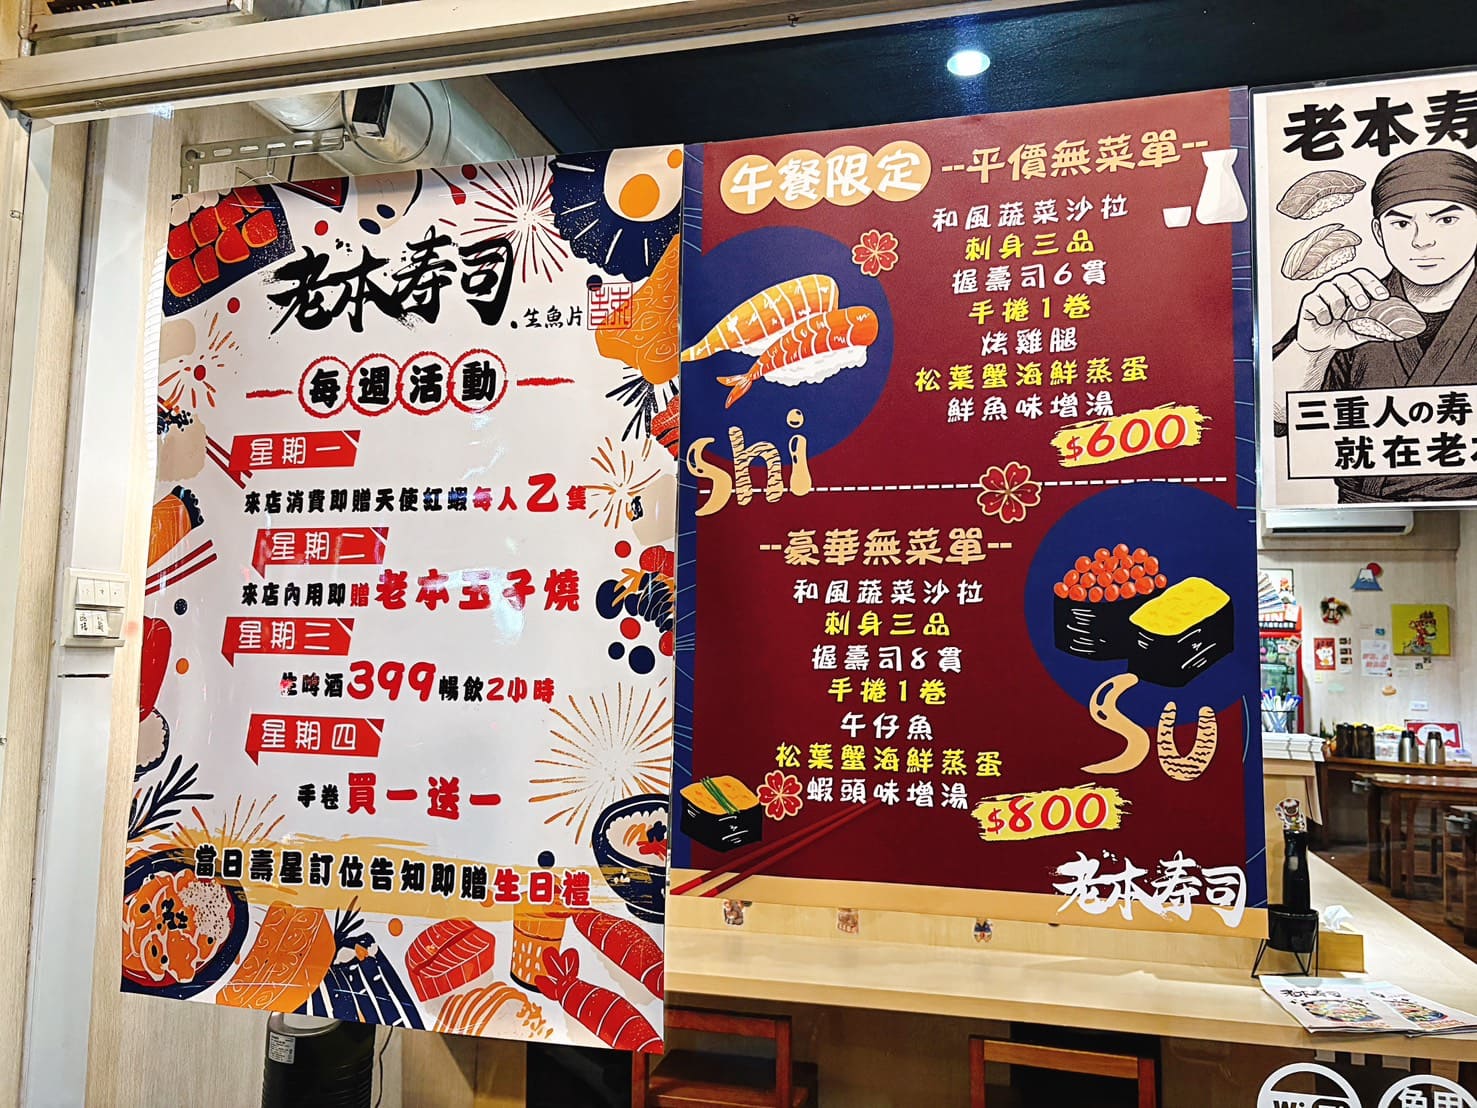 老本寿司
.生魚片
每週活動
星期一
來店消費即贈天使紅蝦每人乙隻
星期二
來店內用即贈老本玉子燒
星期三
生啤酒399暢飲2小時
星期四
手卷買一送一
當日壽星訂位告知即贈生日禮
午餐限定--平價無菜單--
和風蔬菜沙拉
刺身三品
握壽司6貫
手捲1卷
烤雞腿
松葉蟹海鮮蒸蛋
鮮魚味增湯
$600
Shi
--豪華無菜單--
和風蔬菜沙拉
刺身三品
握壽司8貫
手捲1卷
午仔魚
松葉蟹海鮮蒸蛋
蝦頭味增湯
$800
Su
老本寿司
老本寿
三重人の寿
就在老
老本寿司